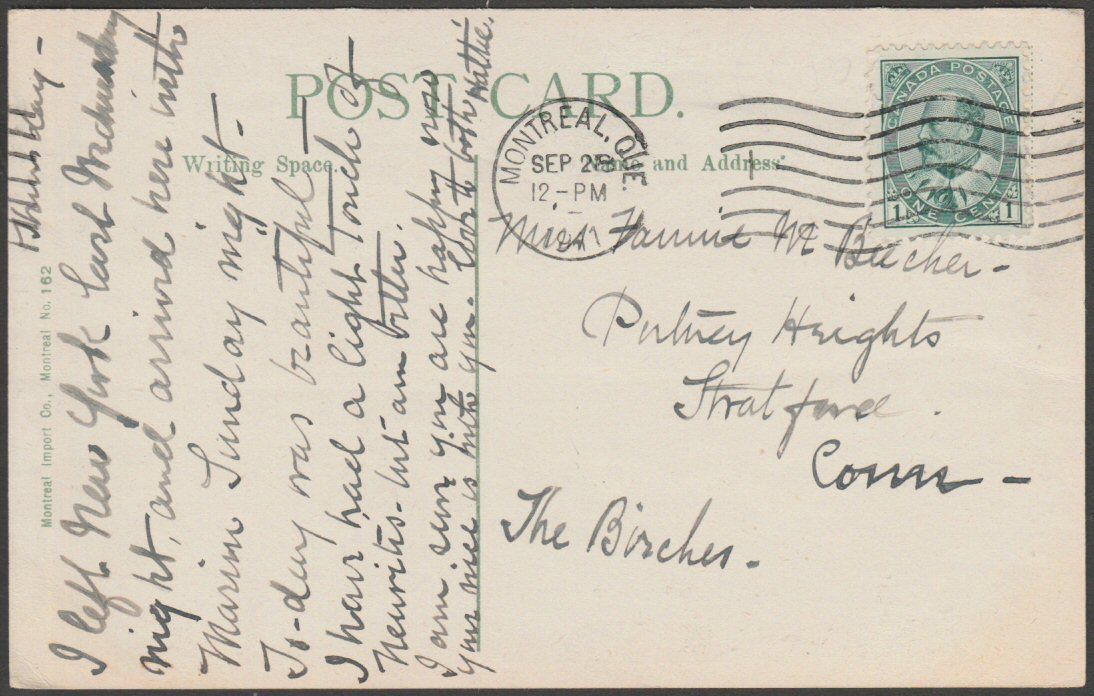 POST CARD.
Writing Space.
Name and Address.
Thursday -
I left New York last Wednesday
night, and arrived here with
Marion Sunday night -
To-day was beautiful -
I have had a light touch of
neuritis - but am better.
I am sure you are happy now
your niece is with you. Love to both
Hattie.
Montreal Import Co., Montreal No. 162
MONTREAL, QUE.
SEP 28
12 - PM
CANADA POSTAGE
1 ONE CENT 1
Miss Fannie M Beecher -
Putney Heights
Stratford.
Conn -
The Birches.